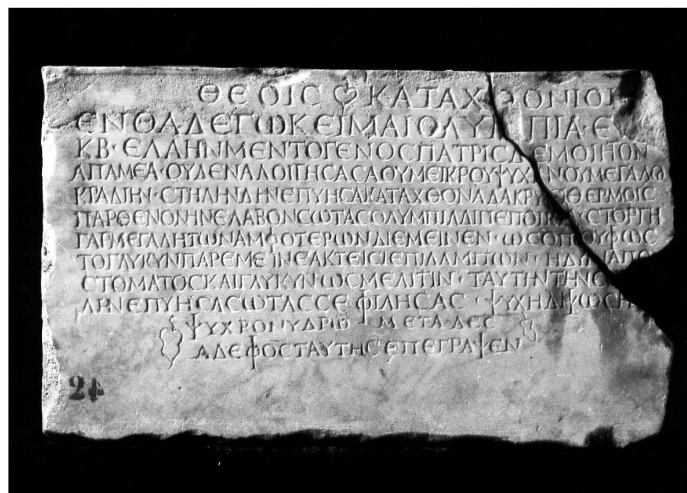 ΘΕΟΙС ΚΑΤΑΧΘΟΝΙΟΙ
ΕΝΘΑΔΕΓΩΚΕΙΜΑΙΟΛΥΜΠΙΑ·Ε
ΚΒ·ΕΛΛΗΝΜΕΝΤΟΓΕΝΟСΠΑΤΡΙСΔΕΜΟΙΗΟΝ
ΑΠΑΜΕΑ·ΟΥΔΕΝΑΛΟΙΠΗСΑСΑΟΥΜΕΙΚΡΟΥΨΥΧΗΝΟΥΜΕΓΑΛΟΥ
ΚΡΑΔΙΗΝ·СΤΗΛΗΝΔΗΝΕΠΥΗСΑΚΑΤΑΧΘΟΝΑΔΑΚΡΥСΙΘΕΡΜΟΙС
ΠΑΡΘΕΝΟΝΗΝΕΛΑΒΟΝСΩΤΑСΟΛΥΜΠΙΑΔΙΠΕΠΟΙΗΚΑ СΤΟΡΓΗ
ΓΑΡΜΕΓΑΛΗΤΩΝΑΜΦΟΤΕΡΩΝΔΙΕΜΕΙΝΕΝ·ΩСΟΠΟΥΦΩС
ΤΟΓΛΥΚΥΝΠΑΡΕΜΕΙΝΕΑΚΤΕΙСΙΕΠΙΛΑΜΠΩΝ·ΗΔΥΝΑΠΟ
СΤΟΜΑΤΟСΚΑΙΓΛΥΚΥΝΩСΜΕΛΙΤΙΝ·ΤΑΥΤΗΝΤΗΝС
ΛΗΝΕΠΥΗСΑСΩΤΑССΕΦΙΛΗСΑС·ΨΥΧΗΔΙΨΩСΗ
ΨΥΧΡΟΝΥΔΩΡ ΜΕΤΑΔΕС
ΑΔΕΦΟСΤΑΥΤΗСΕΠΕΓΡΑΨΕΝ
24